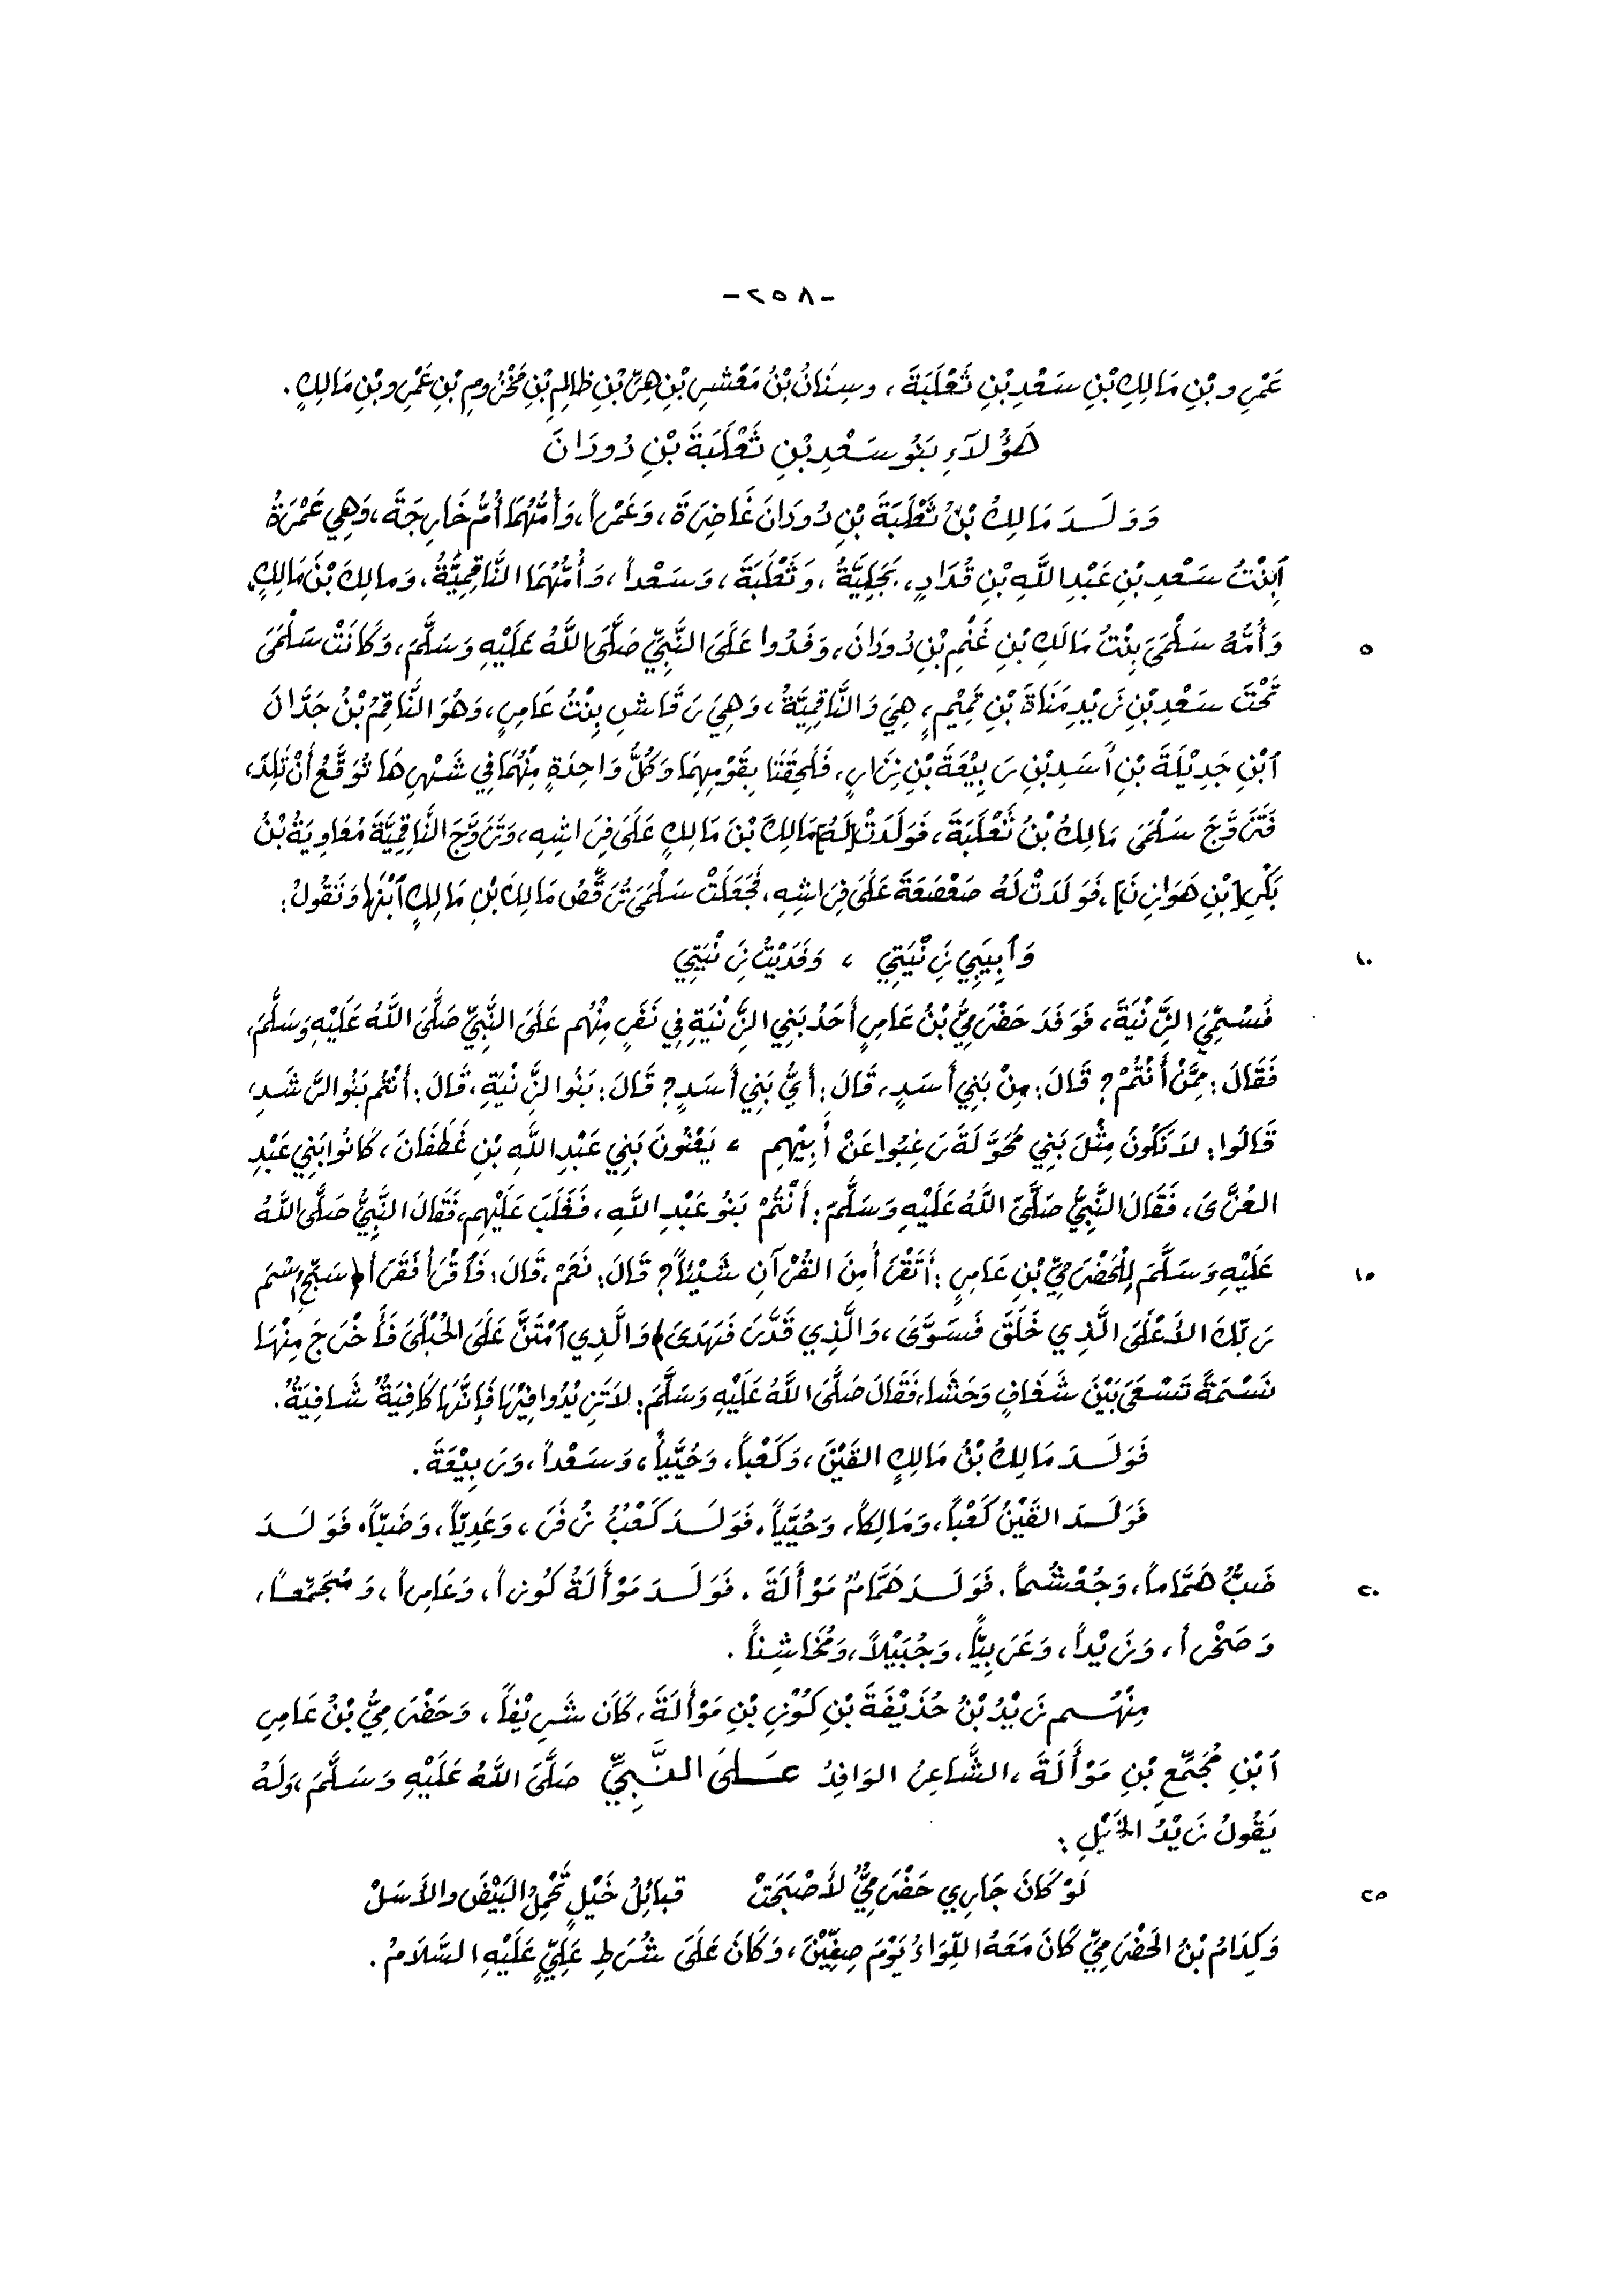 -٢٥٨-
عَمْرِو بْنِ مَالِكِ بْنِ سَعْدِ بْنِ ثَعْلَبَةَ، وسِنَانُ بْنُ مَعْشَرِ بْنِ هِرِّ بْنِ ظَالِمِ بْنِ مَخْزُومِ بْنِ عَمْرِو بْنِ مَالِكٍ.
هَؤُلَاءِ بَنُو سَعْدِ بْنِ ثَعْلَبَةَ بْنِ دُودَانَ
وَوَلَدَ مَالِكُ بْنُ ثَعْلَبَةَ بْنِ دُودَانَ غَاضِرَةَ، وَعَمْراً، وَأُمُّهُمَا أُمُّ خَارِجَةَ، وَهِي عَمْرَةُ
ٱبِنْتُ سَعْدِ بْنِ عَبْدِ اللَّهِ بْنِ قُدَادٍ، بَجَلِيَّةُ، وَثَعْلَبَةَ، وَسَعْداً، وَأُمُّهُمَا النَّاقِمِيَّةُ، وَمالِكَ بْنَ مَالِكٍ،
٥ وَأُمُّهُ سَلْمَىَ بِنْتُ مَالِكِ بْنِ غَنْمِ بْنِ دُودَانَ، وَفَدُوا عَلَىَ النَّبِيِّ صَلَّىَ اللَّهُ عَلَيْهِ وَسَلَّمَ، وَكَانَتْ سَلْمَىَ
تَحْتَ سَعْدِ بْنِ زَيْدِ مَنَاةَ بْنِ تَمِيْمٍ، هِيَ وَالنَّاقِمِيَّةُ، وَهِيَ رَقَاشِ بِنْتُ عَامِرٍ، وَهُوَ النَّاقِمُ بْنُ جَدَّانَ
ٱبْنِ جَدِيْلَةَ بْنِ أَسَدِ بْنِ رَبِيْعَةَ بْنِ نِزَارٍ، فَلَحِقَتَا بِقَوْمِهِمَا وَكُلُّ وَاحِدَةٍ مِنْهُمَا فِي شَهْرِهَا تُوَقَّعُ أَنْ تَلِدَ،
فَتَزَوَّجَ سَلْمَىَ مَالِكُ بْنُ ثَعْلَبَةَ، فَوَلَدَتْ [لَهُ] مَالِكَ بْنَ مَالِكٍ عَلَىَ فِرَاشِهِ، وَتَزَوَّجَ النَّاقِمِيَّةَ مُعَاوِيَةُ بْنُ
بَكْرِ [بْنِ هَوَازِنَ]، فَوَلَدَتْ لَهُ صَعْصَعَةَ عَلَىَ فِرَاشِهِ، فَجَعَلَتْ سَلْمَىَ تُرَقِّصُ مَالِكَ بْنَ مَالِكٍ ٱبْنَهَا وَتَقُولُ:
١٠ وَٱبِيَبِي زِنْيَتِي ، وَفَدَيْتُ زِنْيَتِي
فَسُمِّيَ الزِّنْيَةَ، فَوَفَدَ حَضْرَمِيُّ بْنُ عَامِرٍ أَحَدُ بَنِي الزِّنْيَةِ فِي نَفَرٍ مِنْهُم عَلَىَ النَّبِيِّ صَلَّىَ اللَّهُ عَلَيْهِ وَسَلَّمَ،
فَقَالَ: مِمَّنْ أَنْتُمْ؟ قَالَ: مِنْ بَنِي أَسَدٍ، قَالَ: أَيُّ بَنِي أَسَدٍ؟ قَالَ: بَنُوا الزِّنْيَةِ، قَالَ: أَنْتُم بَنُو الرَّشَدِ،
قَالُوا: لاَ نَكُونُ مِثْلَ بَنِي مُحَوَّلَةَ رَغِبُوا عَنْ أَبِيْهِم ، يَعْنُونَ بَنِي عَبْدِ اللَّهِ بْنِ غَطَفَانَ، كَانُوا بَنِي عَبْدِ
العُزَّىَ، فَقَالَ النَّبِيُّ صَلَّىَ اللَّهُ عَلَيْهِ وَسَلَّمَ: أَنْتُمْ بَنُو عَبْدِ اللَّهِ، فَغَلَبَ عَلَيْهِم، فَقَالَ النَّبِيُّ صَلَّىَ اللَّهُ
١٥ عَلَيْهِ وَسَلَّمَ لِلْحَضْرَمِيِّ بْنِ عَامِرٍ: أَتَقْرَأُ مِنَ القُرْآنِ شَيْئاً؟ قَالَ: نَعَمْ، قَالَ: فَٱقْرَأْ فَقَرَأَ ﴿سَبِّحِ ٱسْمَ
رَبِّكَ الأَعْلَىَ الَّذِي خَلَقَ فَسَوَّىَ، وَالَّذِي قَدَّرَ فَهَدَىَ﴾ وَالَّذِي ٱمْتَنَّ عَلَىَ الحُبْلَىَ فَأَخْرَجَ مِنْهَا
نَسْمَةً تَسْعَىَ بَيْنَ شَغَافٍ وَحَشَا، فَقَالَ صَلَّىَ اللَّهُ عَلَيْهِ وَسَلَّمَ: لاَ تَزِيْدُوا فِيْهَا فَإِنَّهَا كَافِيَةٌ شَافِيَةٌ.
فَوَلَدَ مَالِكُ بْنُ مَالِكٍ القَيْنَ، وَكَعْباً، وَحُيَيَّاً، وَسَعْداً، وَرَبِيْعَةَ.
فَوَلَدَ القَيْنُ كَعْباً، وَمَالِكاً، وَحُيَيّاً، فَوَلَدَ كَعْبُ زُفَرَ، وَعَدِيّاً، وَضَبّاً، فَوَلَدَ
٢٠ ضَبُّ هَمَّاماً، وَجُعْشُماً. فَوَلَدَ هَمَّامٌ مَوْأَلَةَ. فَوَلَدَ مَوْأَلَةُ كُوزاً، وَعَامِراً، وَمُجَمِّعاً،
وَصَخْراً، وَزَيْداً، وَعَرَبِيّاً، وَجُبَيْلاً، وَمُخَاشِناً.
مِنْهُم زَيْدُ بْنُ حُذَيْفَةَ بْنِ كُوْزِ بْنِ مَوْأَلَةَ، كَانَ شَرِيْفاً، وَحَضْرَمِيُّ بْنُ عَامِرِ
ٱبْنِ مُجَمِّعِ بْنِ مَوْأَلَةَ، الشَّاعِرُ الوَافِدُ عَلَىَ النَّبِيِّ صَلَّىَ اللَّهُ عَلَيْهِ وَسَلَّمَ، وَلَهُ
يَقُولُ زَيْدُ الخَيْلِ:
٢٥ لَوْ كَانَ جَارِي حَضْرَمِيٌّ لأَصْبَحَتْ قبائِلُ خَيْلٍ تَحْمِلُ البَيْضَ والأَسَلْ
وَكِدَامُ بْنُ الحَضْرَمِيِّ كَانَ مَعَهُ اللِّوَاءُ يَوْمَ صِفِّيْنَ، وَكَانَ عَلَىَ شُرَطِ عَلِيٍّ عَلَيْهِ السَّلَامُ.